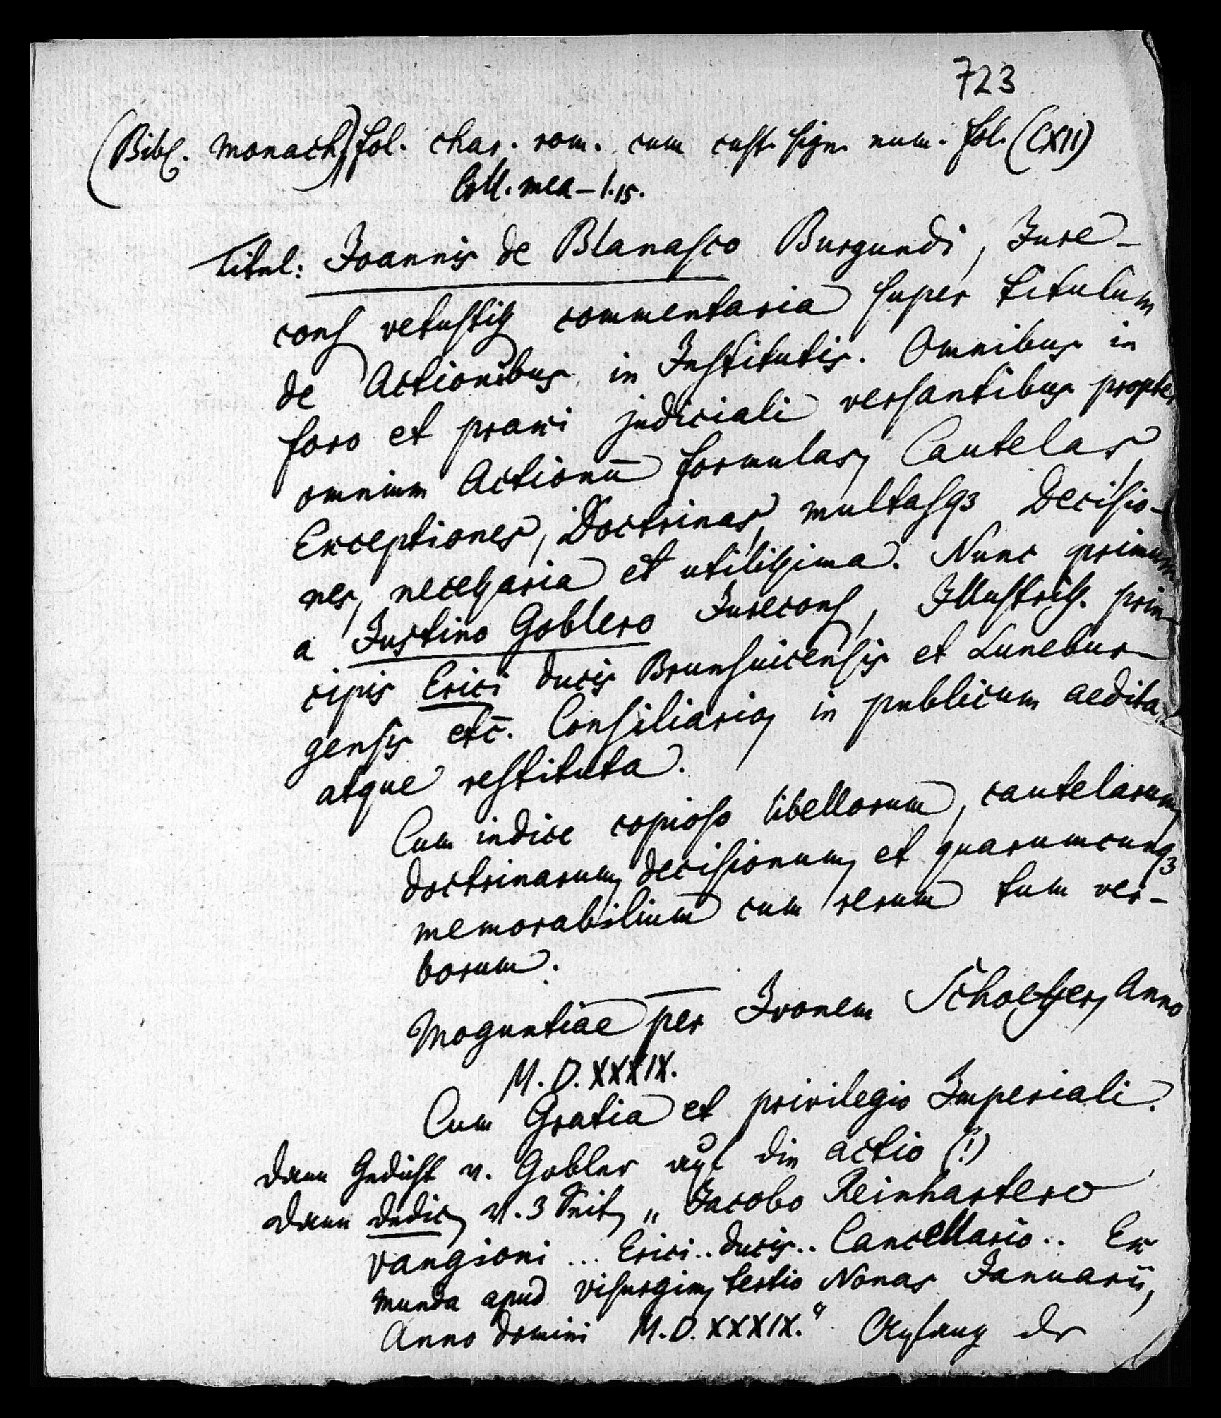 723
(Bibl. Monach.) fol. char. rom. cum cust. sign. num. fol. (CXII)
Coll. mea – 1.15.
Titul: Joannis de Blanasco Burgundi, Jure-
cons vetustiss commentaria super titulum
de Actionibus in Institutis. Omnibus in
foro et praxi judiciali versantibus propter
omnium Actionū formulas, Cautelas,
Exceptiones, Doctrinas, multasqꝫ Decisio-
nes, necessaria et utilissima. Nunc primum
a Justino Goblero Jurecons, Illustriss. prin-
cipis Erici Ducis Brunsuicensis et Lunebur-
gensis etc̄. Consiliario, in publicum aedita,
atque restituta.
Cum indice copioso libellorum, cautelarum,
doctrinarum, decisionum, et quarumcunqꝫ
memorabilium cum rerum tum ver-
borum.
Moguntiae per Ivonem Schoeffer, Anno
M.D.XXXIX.
Cum Gratia et privilegio Imperiali.
Dann Gedicht v. Gobler auf die actio (!)
Dann Dedic, v. 3 Seit, „Jacobo Reinhartero
Vangioni ... Erici .. Ducis .. Cancellario .. Ex
Munda apud Visurgim, tertio Nonas Januarii,
Anno Domini M.D.XXXIX.“ Anfang der